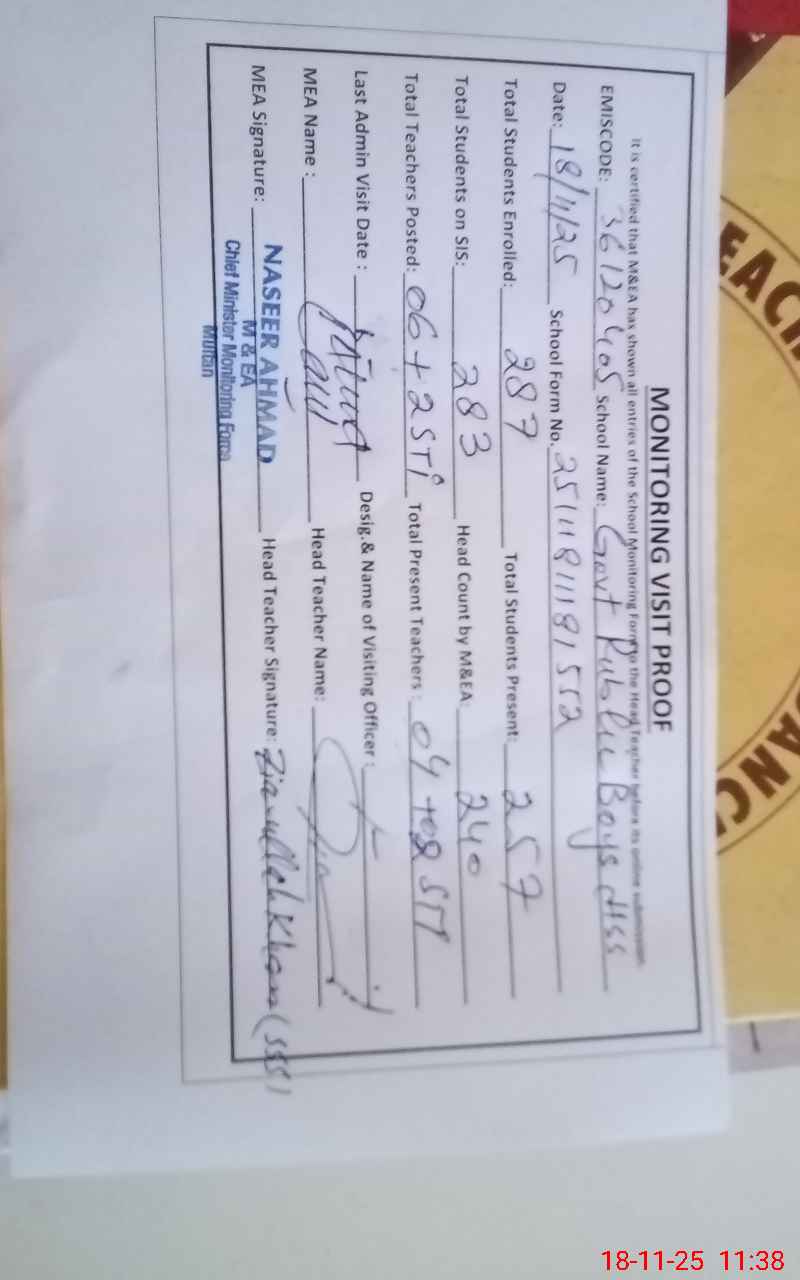 MONITORING VISIT PROOF
It is certified that M&EA has shown all entries of the School Monitoring Form to the Head Teacher before its online submission.
EMISCODE: 36120405 School Name: Govt Public Boys HSS
Date: 18/11/25 School Form No. 25111811181552
Total Students Enrolled: 287 Total Students Present: 257
Total Students on SIS: 283 Head Count by M&EA: 240
Total Teachers Posted: 06 + 2 STI Total Present Teachers: 04 + 02 STI
Last Admin Visit Date : Desig.& Name of Visiting Officer :
MEA Name : Head Teacher Name:
MEA Signature: NASEER AHMAD Head Teacher Signature: Zia ullah Khan (SSS)
M & EA
Chief Minister Monitoring Force
Multan
EACH
ANC
18-11-25 11:38